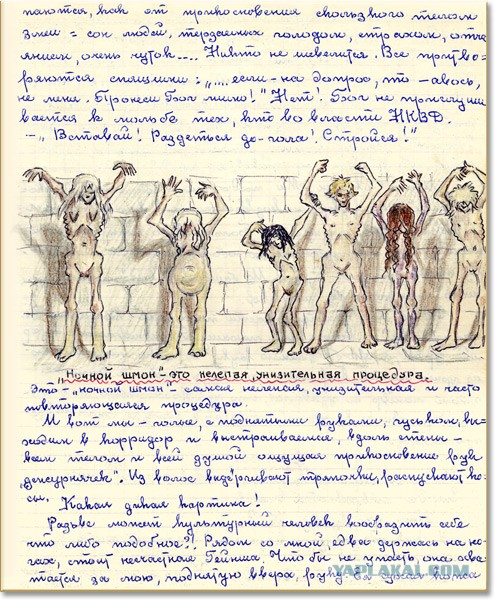 паются, как от прикосновения скользкого телом
змеи = сон людей, терзаемых голодом, страхом, отча
янием, очень чуток.... Никто не шевелится. Все притво-
ряются спящими: "....если - на допрос, то - авось,
не меня. Пронеси Бог мимо!" Нет! Бог не прислуши
вается к мольбе тех, кто во власти НКВД.
-„ Вставай! Раздеться до-гола! Стройся!"
„Ночной шмон"-это нелепая, унизительная процедура.
Это - „ночной шмон" - самая нелепая, унизительная и часто
повторяющаяся процедура.
И вот мы - голые, с поднятыми руками, гуськом, вы-
ходим в корридор и выстраиваемся, вдоль стены -
всем телом и всей душой ощущая прикосновение рук
„дежурнячек". Из волос выдёргивают тряпочки, распускают ко-
сы. Какая дикая картина!
Разве может культурный человек вообразить себе
что либо подобное?! Рядом со мной, едва держась на но-
гах, стоит несчастная Гейша. Что бы не упасть, она хва-
тается за мою, поднятую вверх, руку.
YAPLAKAL.COM